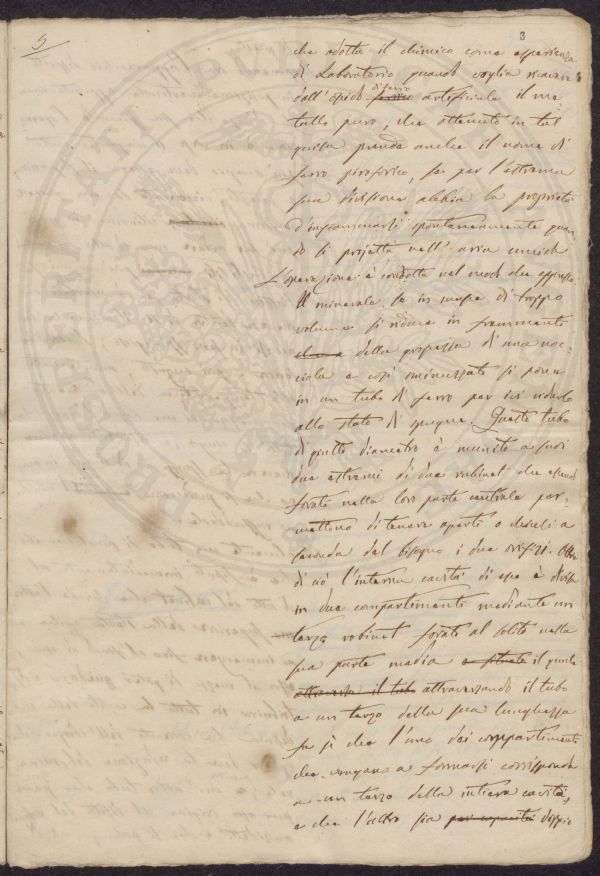 5
3
che adotta il chimico come esperienza
di Laboratorio quando voglia ricavare
dall'ossido di ferro ferreo artificiale il me-
tallo puro, che ottenuto in tal
guisa prende anche il nome di
ferro piroforico, se per l'estrema
sua divisione abbia la proprietà
d'infiammarsi spontaneamente quan-
do si projetta nell'aria umida
L'operazione è condotta nel modo che appresso.
Il minerale, se in massa di troppo
volume si riduce in frammenti
della grossezza di una noc-
ciola e così sminuzzato si pone
in un tubo di ferro per ivi ridurlo
allo stato di spugna. Questo tubo
di giusto diametro è munito a suoi
due estremi di due rubinet che essendo
forati nella loro parte centrale per-
mettono di tenere aperti o chiusi a
seconda del bisogno i due orifizi. Oltre
di ciò l'interna cavità di esso è divisa
in due compartimenti mediante un
terzo robinet forato al solito nella
sua parte media e situato il quale
attraversa il tubo attraversando il tubo
a un terzo della sua lunghezza
fa sì che l'uno dei compartimenti
che vengono a formarsi corrisponda
a un terzo della intiera cavità,
e che l'altro sia per capacità doppio